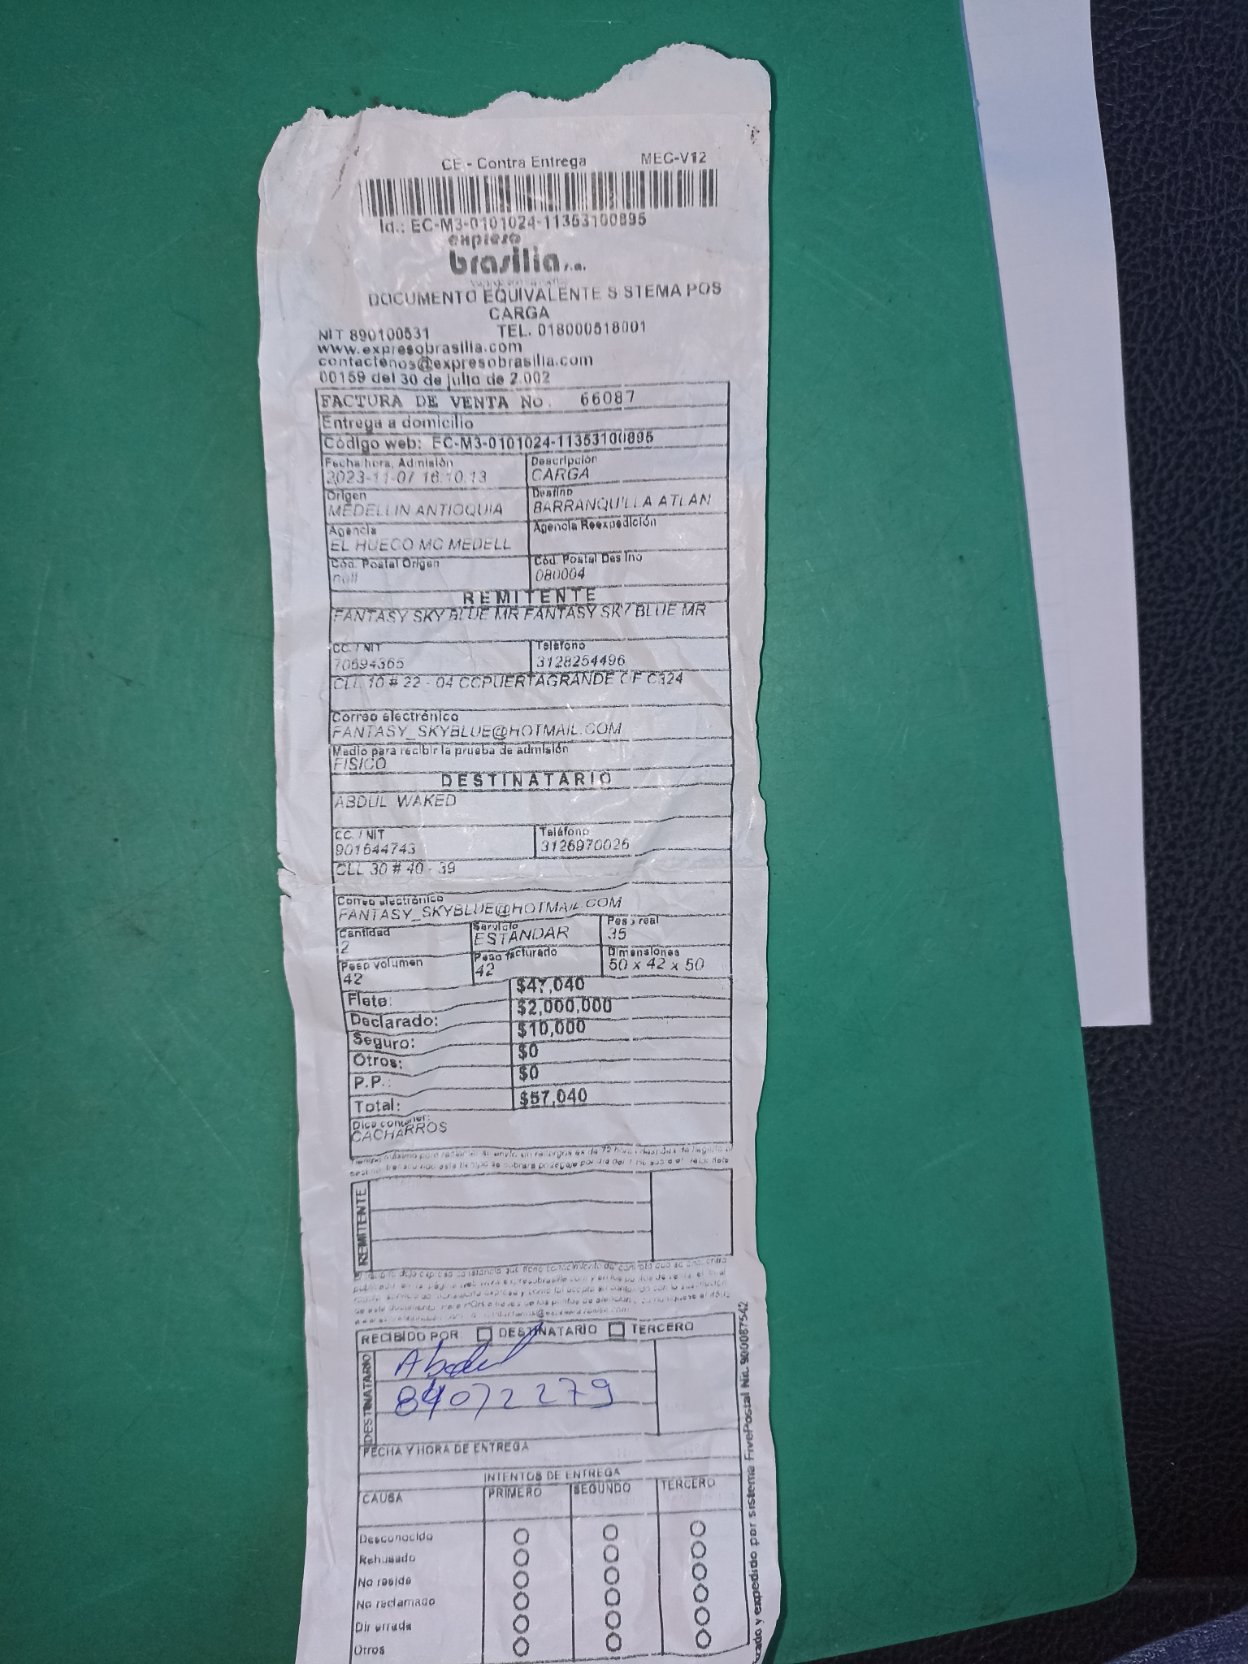 CE - Contra Entrega MEC-V12
Id.: EC-M3-0101024-11353100895
expreso
brasilia s.a.
DOCUMENTO EQUIVALENTE S STEMA POS
CARGA
NIT 890100531 TEL. 018000518001
www.expresobrasilia.com
contactenos@expresobrasilia.com
00159 del 30 de julio de 2.002
FACTURA DE VENTA No. 66087
Entrega a domicilio
Código web: EC-M3-0101024-11353100895
Fecha hora. Admisión Descripción
2023-11-07 16:10:13 CARGA
Origen Destino
MEDELLIN ANTIOQUIA BARRANQUILLA ATLAN
Agencia Agencia Reexpedición
EL HUECO MC MEDELL
Cód. Postal Origen Cód. Postal Destino
null 080004
REMITENTE
FANTASY SKY BLUE MR FANTASY SKY BLUE MR
CC. / NIT Teléfono
70694365 3128254496
CLL 10 # 22 - 04 CCPUERTAGRANDE OF C324
Correo electrónico
FANTASY_SKYBLUE@HOTMAIL.COM
Medio para recibir la prueba de admisión
FISICO
DESTINATARIO
ABDUL WAKED
CC. / NIT Teléfono
901644743 3126970026
CLL 30 # 40 - 39
Correo electrónico
FANTASY_SKYBLUE@HOTMAIL.COM
Cantidad Servicio Peso real
2 ESTANDAR 35
Peso volumen Peso facturado Dimensiones
42 42 50 x 42 x 50
Flete: $47,040
Declarado: $2,000,000
Seguro: $10,000
Otros: $0
P.P.: $0
Total: $57,040
Dice contener:
CACHARROS
REMITENTE
RECIBIDO POR DESTINATARIO TERCERO
DESTINATARIO
Abdul
84072279
FECHA Y HORA DE ENTREGA
INTENTOS DE ENTREGA
CAUSA PRIMERO SEGUNDO TERCERO
Desconocido
Rehusado
No reside
No reclamado
Dir errada
Otros
y expedido por sistema FivePostal Nit. 900087542